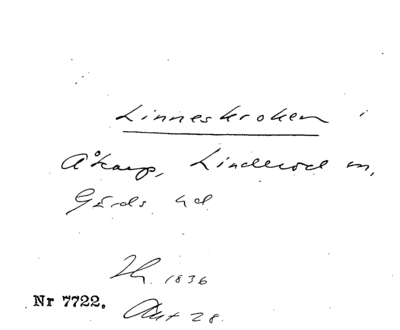 Linneskroken i
Åkarp, Linderöd sn,
Gärds hd
Th. 1836
Nr 7722.
Akt 28.